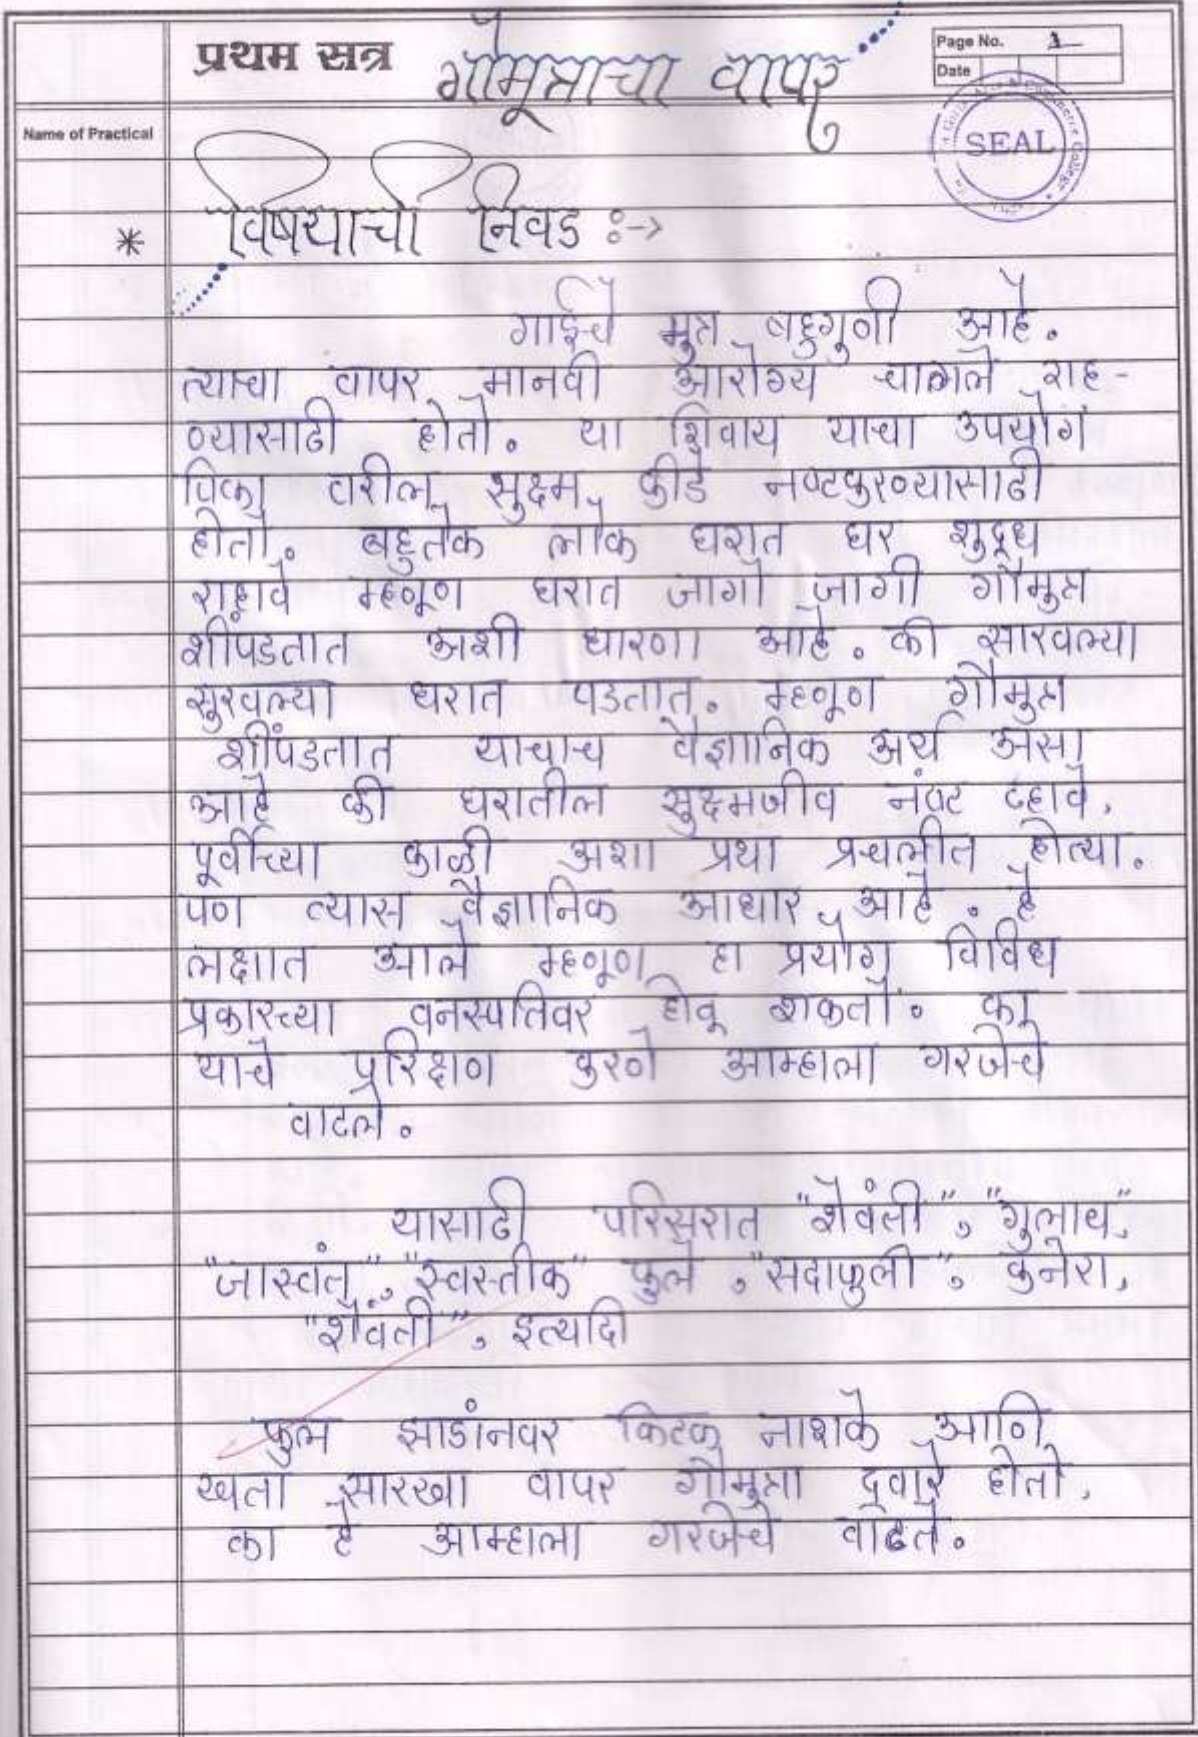 प्रथम सत्र
गोमूत्राचा वापर
Page No. 1
Date
SEAL
Name of Practical
* विषयाची निवड :->
गाईचे मुत्र बहुगुणी आहे.
त्याचा वापर मानवी आरोग्य चांगले राह-
ण्यासाठी होतो. या शिवाय याचा उपयोग
पिका वरील सुक्ष्म कीडे नष्टकरण्यासाठी
होतो. बहुतेक लोक घरात घर शुद्ध
राहावे म्हणूण घरात जागो जागी गौमुत्र
शींपडतात अशी धारणा आहे. की सारवल्या
सुरवल्या घरात पडतात. म्हणूण गौमुत्र
शींपडतात याचाच वैज्ञानिक अर्थ असा
आहे की घरातील सुक्ष्मजीव नष्ट व्हावे.
पूर्वीच्या काळी अशा प्रथा प्रचलीत होत्या.
पण त्यास वैज्ञानिक आधार आहे. हे
लक्षात आले म्हणूण हा प्रयोग विविध
प्रकारच्या वनस्पतिवर होवू शकतो. का
याचे परिक्षण करणे आम्हाला गरजेचे
वाटले.
यासाठी परिसरात "शेवंती", "गुलाब",
"जास्वंत", "स्वस्तीक" फुले, "सदाफुली", कनेरा,
"शेवंती", इत्यदि
फुल झाडांनवर किटक नाशके आणि
खता सारखा वापर गौमुत्रा द्वारे होतो,
का हे आम्हाला गरजेचे वाढते.